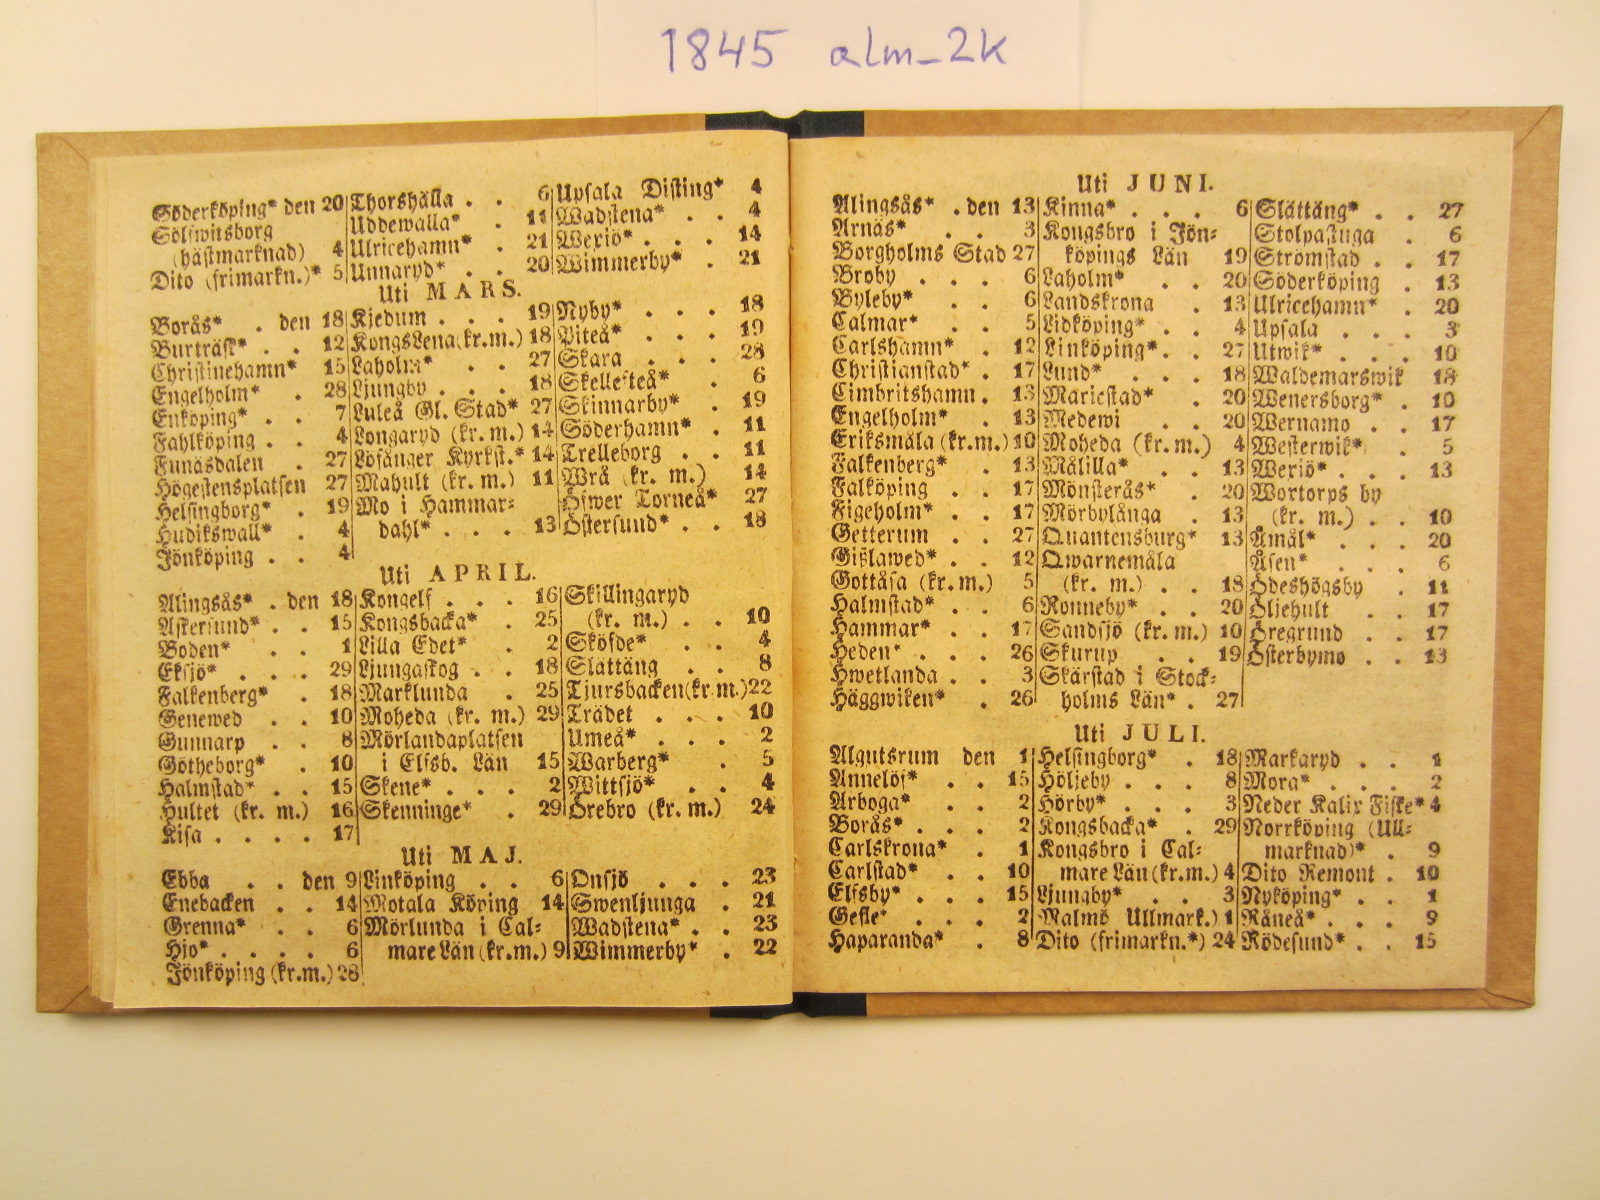 1845 alm_2k
Söderköping* den 20
Sölfwitsborg
(hästmarknad) 4
Dito (frimarkn.)* 5
Thorshälla . . 6
Uddewalla* . 11
Ulricehamn* . 21
Unnaryd* . . 20
Upsala Disting* 4
Wadstena* . . 4
Wexiö* . . . 14
Wimmerby* . 21
Uti MARS.
Borås* . den 18
Burträsk* . . 12
Christinehamn* 15
Engelholm* . 28
Enköping* . . 7
Fahlköping . . 4
Funäsdalen . 27
Högestensplatsen 27
Helsingborg* . 19
Hudikswall* . 4
Jönköping . . 4
Kjedum . . . 19
KongsLena(kr.m.) 18
Laholm* . . 27
Ljungby . . . 18
Luleå Gl. Stad* 27
Longaryd (kr. m.) 14
Löfånger Kyrkst.* 14
Mahult (kr. m.) 11
Mo i Hammar=
dahl* . . . 13
Nyby* . . . 18
Piteå* . . . 19
Skara . . . 28
Skellefteå* . 6
Skinnarby* . 19
Söderhamn* . 11
Trelleborg . . 11
Wrå (kr. m.) 14
Öfwer Torneå* 27
Östersund* . . 18
Uti APRIL.
Alingsås* . den 18
Åstersund* . . 15
Boden* . . 1
Eksjö* . . . 29
Falkenberg* . 18
Genewed . . 10
Gunnarp . . 8
Götheborg* . 10
Halmstad* . . 15
Hultet (kr. m.) 16
Kisa . . . . 17
Kongelf . . . 16
Kongsbacka* . 25
Lilla Edet* . 2
Ljungaskog . . 18
Marklunda . 25
Moheda (kr. m.) 29
Mörlandaplatsen
i Elfsb. Län 15
Skene* . . . 2
Skenninge* . 29
Skillingaryd
(kr. m.) . . 10
Sköfde* . . 4
Slättäng . . 8
Tjursbacken(kr.m.)22
Trädet . . . 10
Umeå* . . . 2
Warberg* . . 5
Wittsjö* . . 4
Örebro (kr. m.) 24
Uti MAJ.
Ebba . . den 9
Enebacken . . 14
Grenna* . . 6
Hjo* . . . . 6
Jönköping (kr.m.) 28
Linköping . . 6
Motala Köping 14
Mörlunda i Cal=
mare Län (kr.m.) 9
Onsjö . . . 23
Swenljunga . 21
Wadstena* . . 23
Wimmerby* . 22
Uti JUNI.
Alingsås* . den 13
Arnäs* . . 3
Borgholms Stad 27
Broby . . . 6
Byleby* . . 6
Calmar* . . 5
Carlshamn* . 12
Christianstad* . 17
Cimbritshamn . 13
Engelholm* . 13
Eriksmåla (kr.m.) 10
Falkenberg* . 13
Falköping . . 17
Figeholm* . . 17
Getterum . . 27
Gißlawed* . . 12
Gottåsa (kr.m.) 5
Halmstad* . . 6
Hammar* . . 17
Heden* . . . 26
Hwetlanda . . 3
Häggwiken* . 26
Kinna* . . . 6
Kongsbro i Jön=
köpings Län 19
Laholm* . . 20
Landskrona . 13
Lidköping* . . 4
Linköping* . . 27
Lund* . . . 18
Mariestad* . 20
Medewi . . 20
Moheda (kr. m.) 4
Målilla* . . 13
Mönsterås* . 20
Mörbylånga . 13
Quantensburg* 13
Qwarnemåla
(kr. m.) . . 18
Ronneby* . . 20
Sandsjö (kr. m.) 10
Skurup . . 19
Skärstad i Stock=
holms Län* . 27
Slättäng* . . 27
StolpaStuga . 6
Strömstad . . 17
Söderköping . 13
Ulricehamn* . 20
Upsala . . . 3
Utwik* . . . 10
Waldemarswik 18
Wenersborg* . 10
Wernamo . . 17
Westerwik* . 5
Wexiö* . . . 13
Wortorps by
(kr. m.) . . 10
Åmål* . . . 20
Åsen* . . . 6
Ödeshögsby . 11
Öljehult . . 17
Öregrund . . 17
Österbymo . . 13
Uti JULI.
Algutsrum den 1
Annelöf* . . 15
Arboga* . . 2
Borås* . . . 2
Carlskrona* . 1
Carlstad* . . 10
Elfsby* . . . 15
Gefle* . . . 2
Haparanda* . 8
Helsingborg* . 18
Höljeby . . . 8
Hörby* . . . 3
Kongsbacka* . 29
Kongsbro i Cal=
mare Län (kr.m.) 4
Ljungby* . . 3
Malmö Ullmark.) 1
Dito (frimarkn.*) 24
Markaryd . . 1
Mora* . . . 2
Neder Kalix Fiske* 4
Norrköping (Ull=
marknad)* . 9
Dito Remont . 10
Nyköping* . . 1
Råneå* . . . 9
Rödesund* . . 15